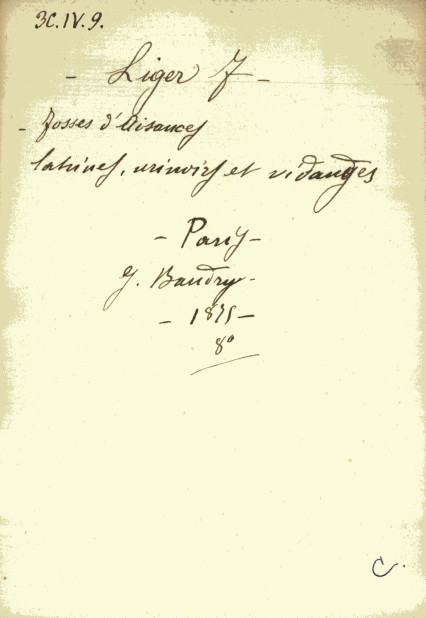 3C.IV.9.
- Liger F -
- Fosses d'Aisances
latrines, urinoirs et vidanges
- Paris -
J. Baudry -
- 1875 -
8°
C.